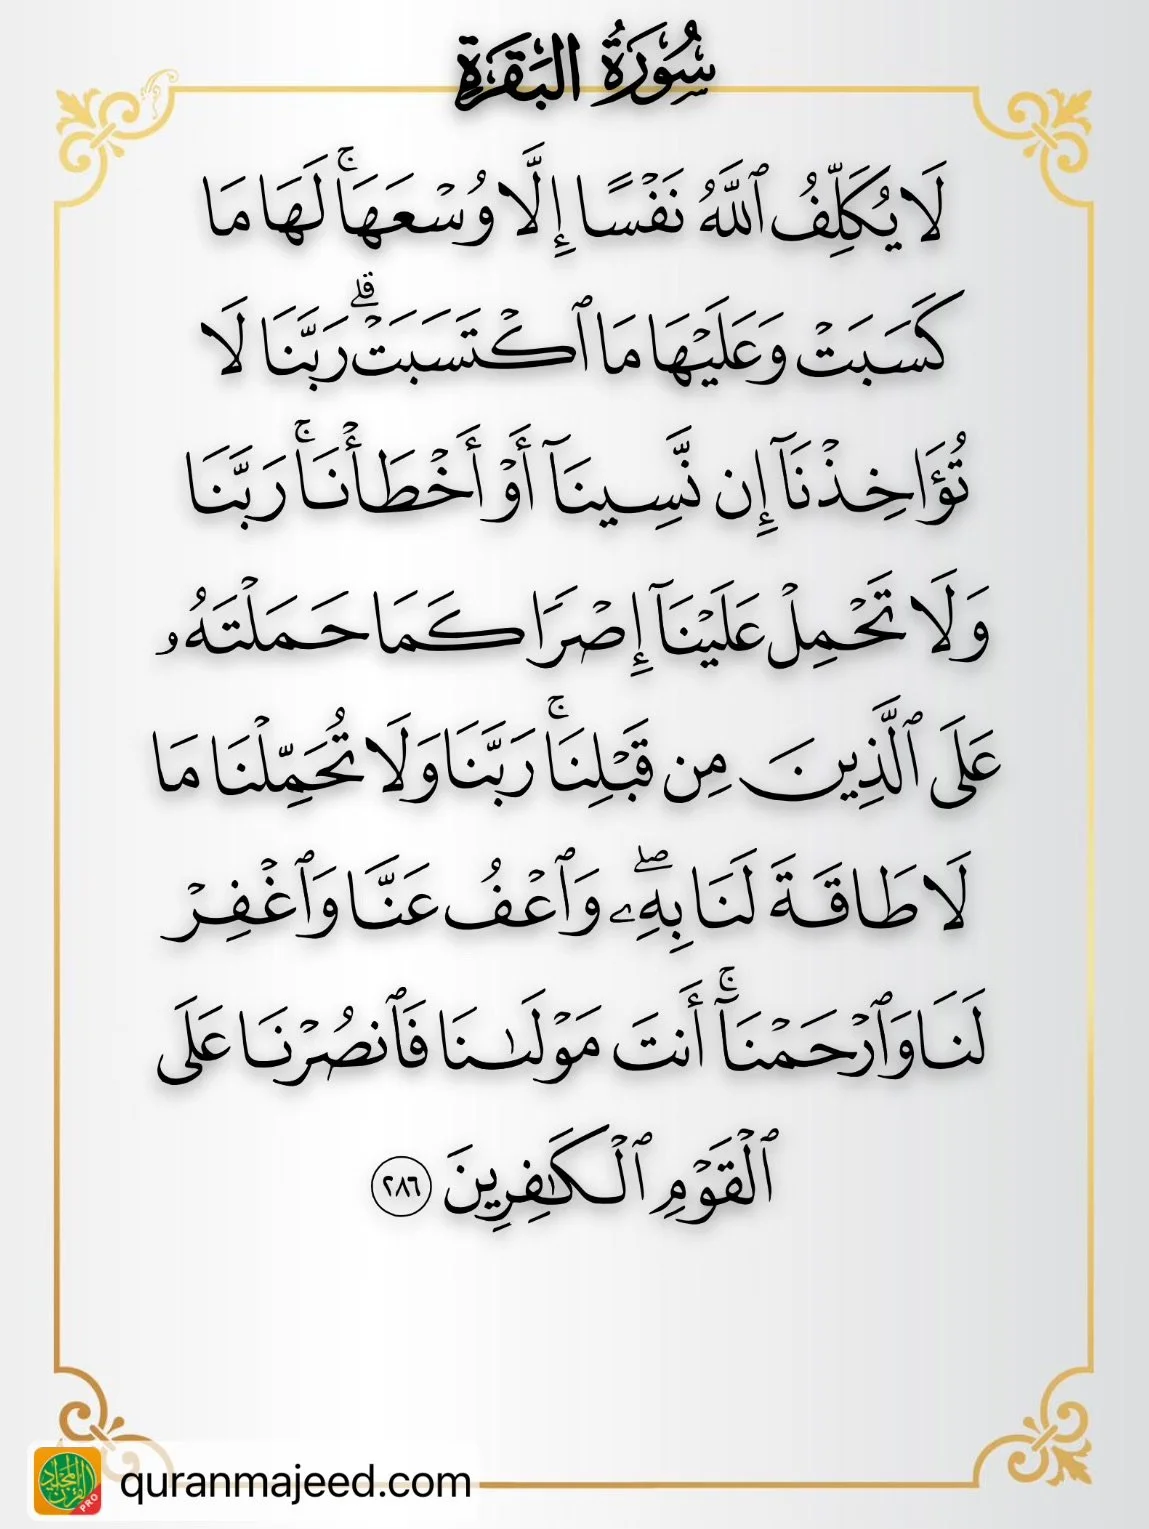 سُورَةُ البَقَرَةِ
لَا يُكَلِّفُ ٱللَّهُ نَفْسًا إِلَّا وُسْعَهَاۚ لَهَا مَا
كَسَبَتْ وَعَلَيْهَا مَا ٱكْتَسَبَتْۗ رَبَّنَا لَا
تُؤَاخِذْنَآ إِن نَّسِينَآ أَوْ أَخْطَأْنَاۚ رَبَّنَا
وَلَا تَحْمِلْ عَلَيْنَآ إِصْرًا كَمَا حَمَلْتَهُۥ
عَلَى ٱلَّذِينَ مِن قَبْلِنَاۚ رَبَّنَا وَلَا تُحَمِّلْنَا مَا
لَا طَاقَةَ لَنَا بِهِۦۖ وَٱعْفُ عَنَّا وَٱغْفِرْ
لَنَا وَٱرْحَمْنَآۚ أَنتَ مَوْلَىٰنَا فَٱنصُرْنَا عَلَى
ٱلْقَوْمِ ٱلْكَـٰفِرِينَ ٢٨٦
quranmajeed.com
PRO